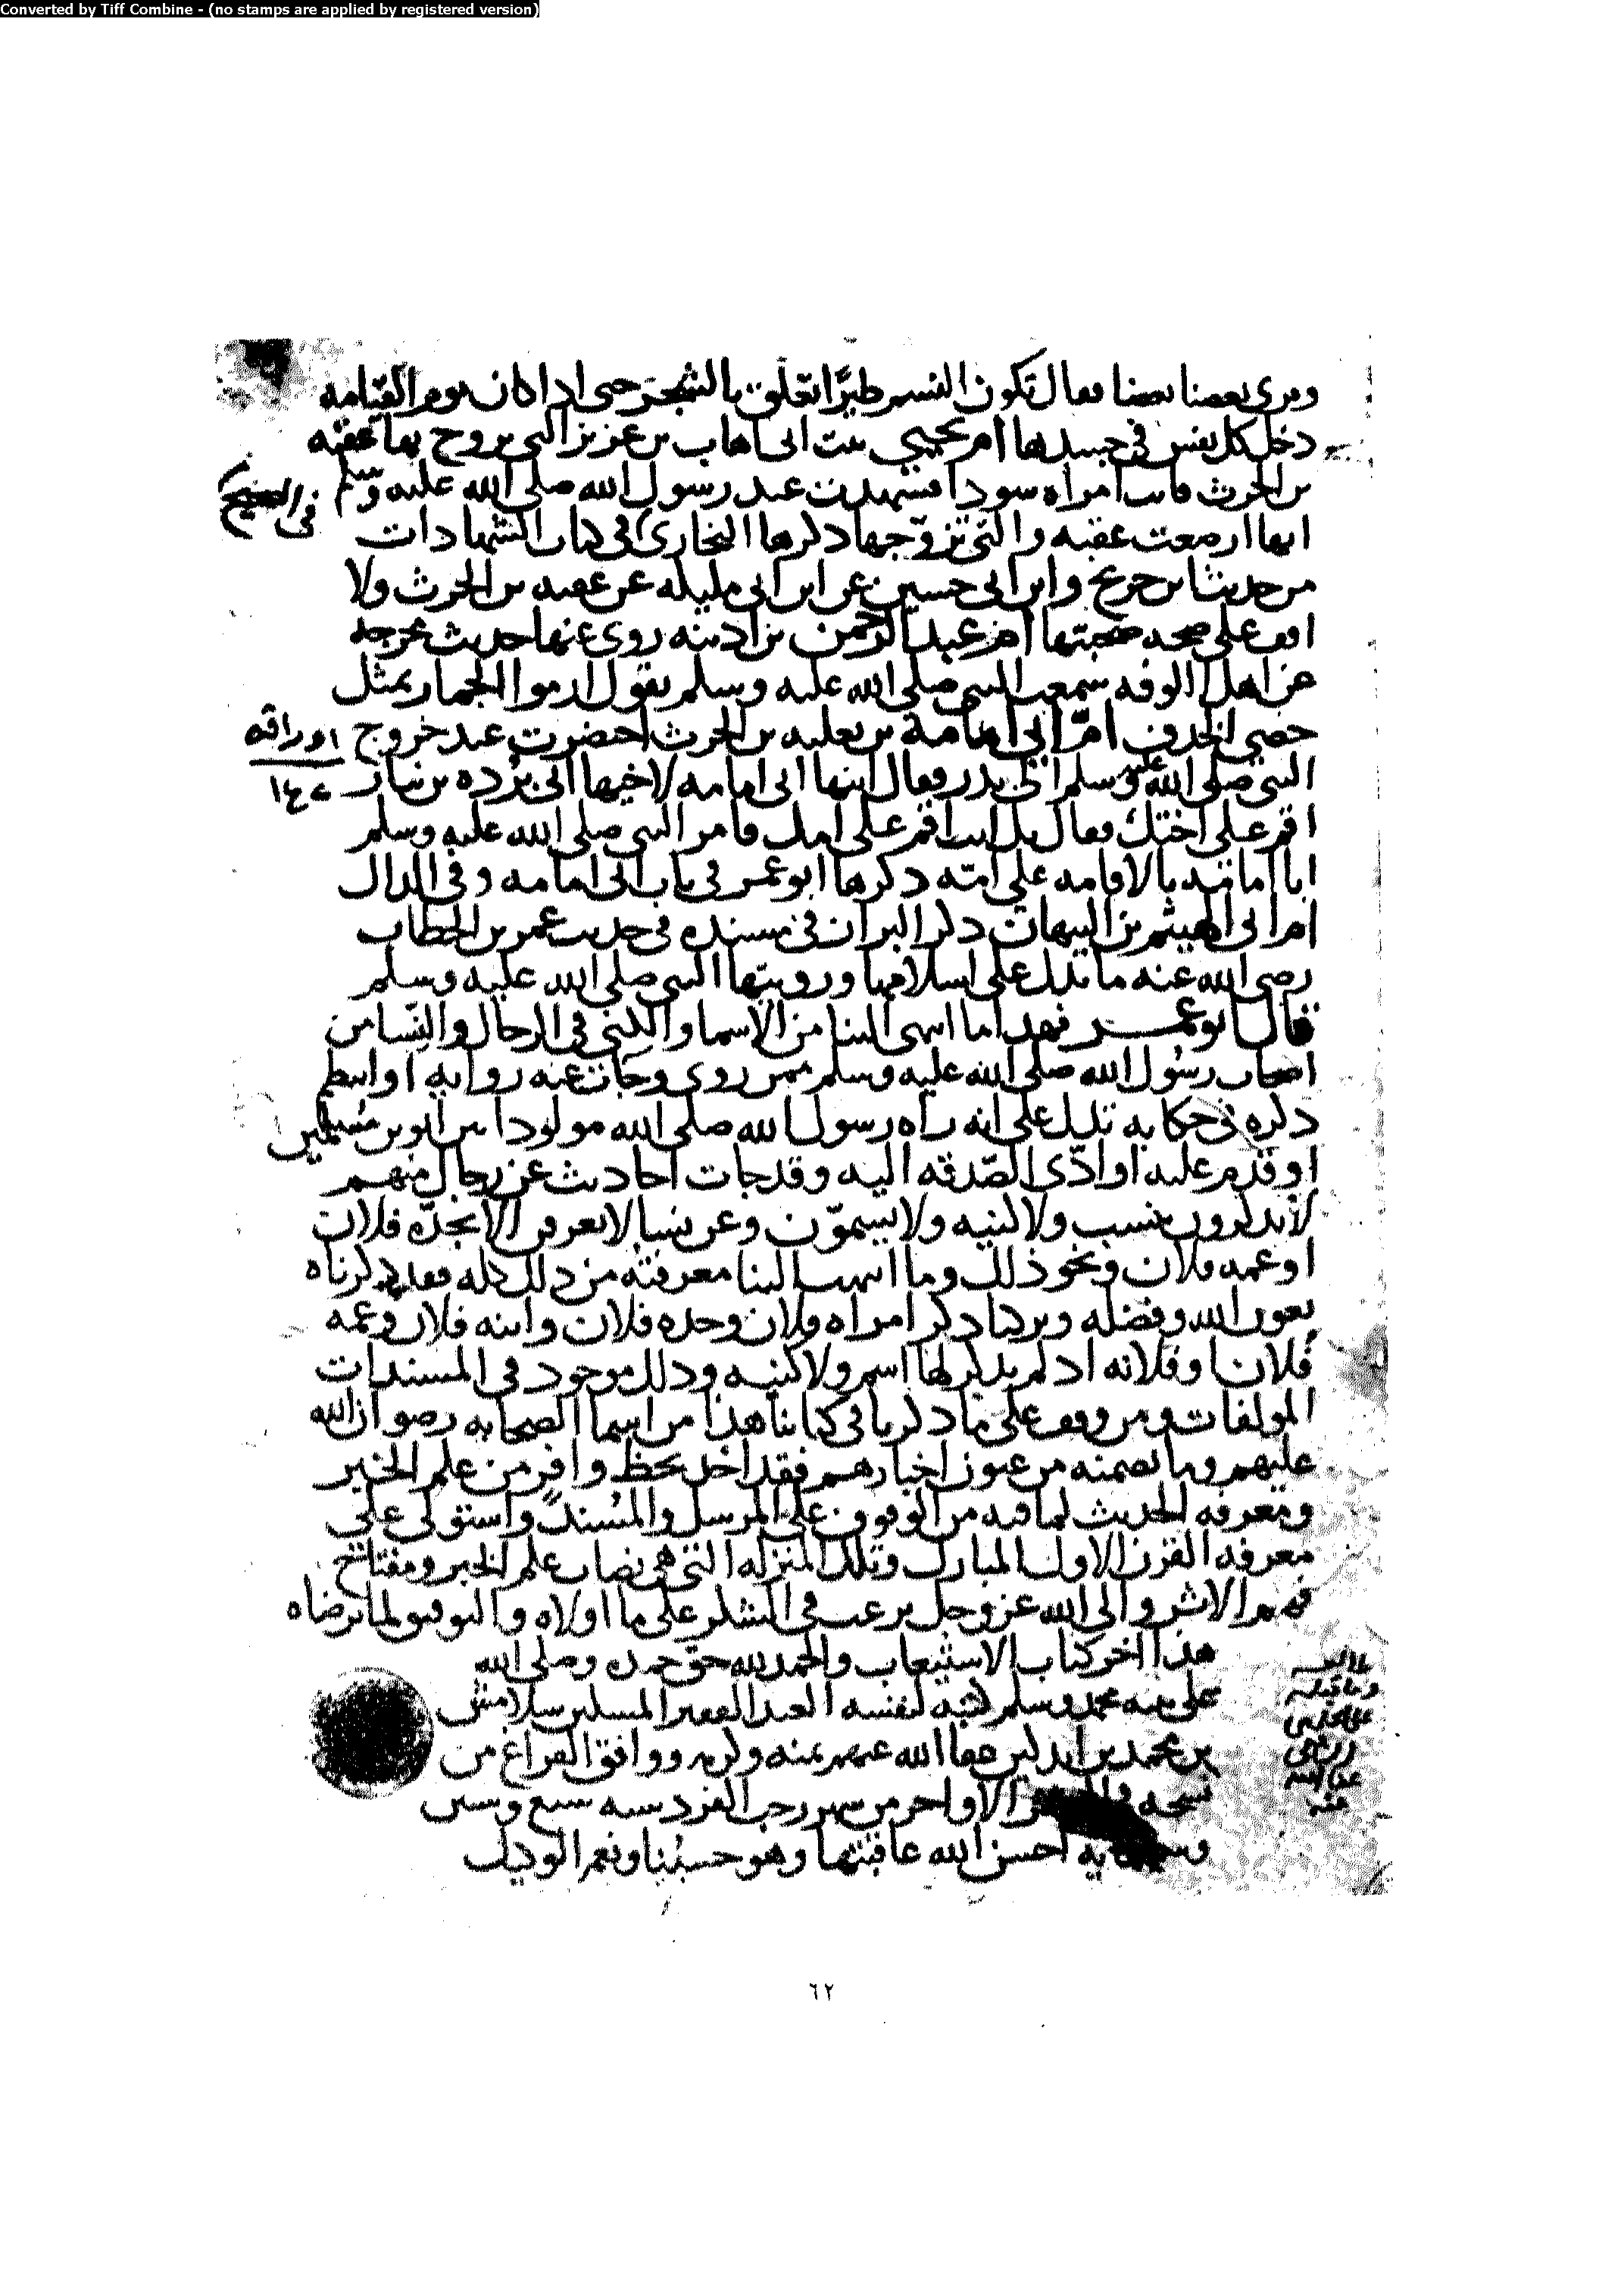 Converted by Tiff Combine - (no stamps are applied by registered version)
ويرى بعضنا بعضا فقال تكون النسم طيرًا تعلق بالشجر حتى اذا كان يوم القيامه
دخل كل نفس في جسدها ام يحيى بنت ابى اهاب بن عزيز التي تزوج بها عقبه
بن الحرث فاتت امراه سودا فشهدت عند رسول الله صلى الله عليه وسلم
في الصحيح
انها ارضعت عقبه والتي تزوجها ذكرها البخارى في كتاب الشهادات
من حديث ابن جريج وابن ابى حسين عن ابن ابى مليكه عن عقبه بن الحرث ولا
اقف على صحه صحبتها ام عبد الرحمن بن اذينه روى عنها حديث مخرجه
عن اهل الكوفه سمعت النبي صلى الله عليه وسلم يقول ارموا الجمار بمثل
حصى الخذف ام ابى امامة بن ثعلبه بن الحرث احضرت عند خروج
اوراقه
١٤٧
النبي صلى الله عليه وسلم الى بدر فقال ابنها ابى امامه لاخيها ابى برده بن نيار
اقم على اختك فقال بل انت اقم على امك فامر النبي صلى الله عليه وسلم
ابا امامه بالاقامه على امه ذكرها ابو عمر في باب ابى امامه وفي الدال
ام ابى الهيثم بن التيهان ذكر البزار في مسنده في حديث عمر بن الخطاب
رضي الله عنه ما يدل على اسلامها ورويتها النبي صلى الله عليه وسلم
قال ابو عمر فهذا ما انتهى الينا من الاسما والكنى في الرجال والنسا من
اصحاب رسول الله صلى الله عليه وسلم ممن روى وجات عنه روايه او انتظم
ذكره في حكايه تدل على انه راه رسول الله صلى الله مولودا بين ابوين مسلمين
او قدم عليه او ادى الصدقه اليه وقد جات احاديث عن رجال منهم
لا يذكرون بنسب ولا كنيه ولا يسمون وعن نسا لا يعرفن الا بجده فلان
او عمه فلان ونحو ذلك وما انتهت الينا معرفته من ذلك كله فقد ذكرناه
بعون الله وفضله وتركنا ذكر امراه فلان وجده فلان وابنه فلان وعمه
فلان وفلانه اذ لم يذكر لها اسم ولا كنيه وذلك موجود في المسندات
المولفات ومن وقف على ما ذكرنا في كتابنا هذا من اسما الصحابه رضوان الله
عليهم وما تضمنه من عيون اخبارهم فقد اخذ بحظ وافر من علم الخبر
ومعرفه الحديث لما فيه من الوقوف على المرسل والمسند واستولى على
معرفه القرن الاول المبارك وتلك المنزله التي هي نصاب علم الخبر ومفتاح
فهم الاثر والى الله عز وجل نرغب في الشكر على ما اولاه والتوفيق لما يرضاه
هذا اخر كتاب الاستيعاب والحمد لله حق حمده وصلى الله
على محمد وسلم كتبه لنفسه العبد الفقير سلامش
بن محمد بن ايدكين عفا الله عنهم بمنه وكرمه ووافق الفراغ من
نسخه الاواخر من شهر رجب الفرد سنه سبع وستين
احسن الله عاقبتها وهو حسبنا ونعم الوكيل
عفا الله
عنه
٦٢